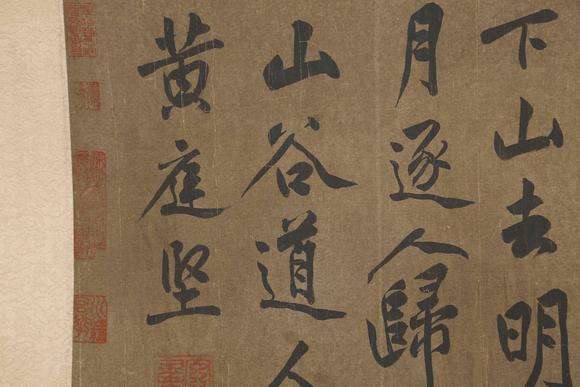 下山去明
月逐人歸
山谷道人
黄庭堅